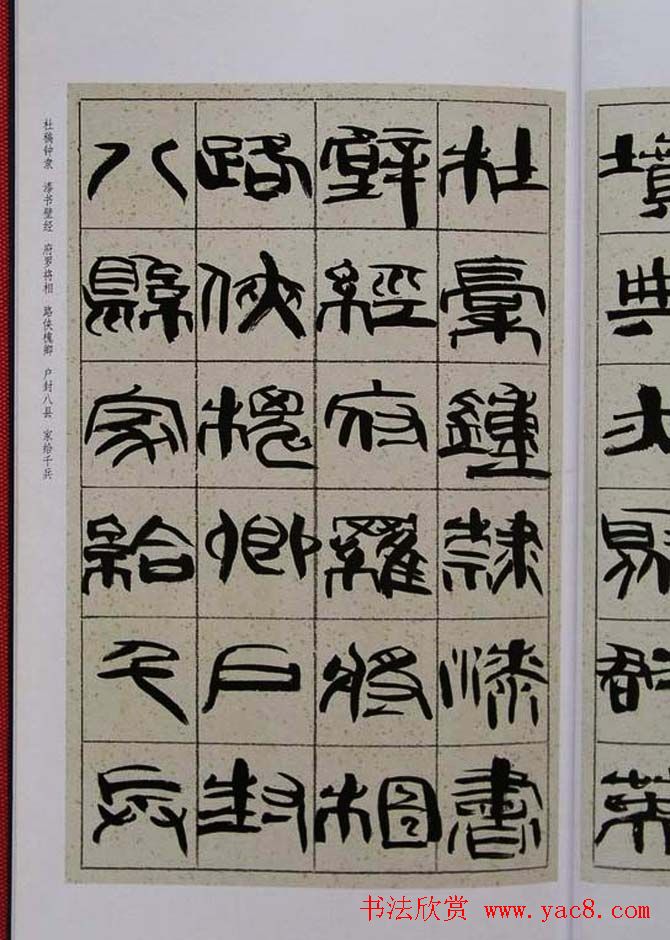 杜稾鍾隸漆書
壁經府羅將相
路俠槐卿户封
八縣家給千兵
杜稿钟隶 漆书壁经 府罗将相 路侠槐卿 户封八县 家给千兵
书法欣赏 www.yac8.com